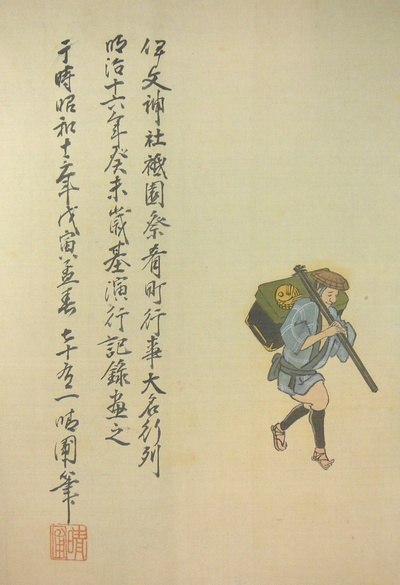 伊文神社祗園祭肴町行事大名行列
明治十六年癸未歳基演行記録画之
于時昭和十三年戊寅孟春 七十五 晴圃筆
晴圃